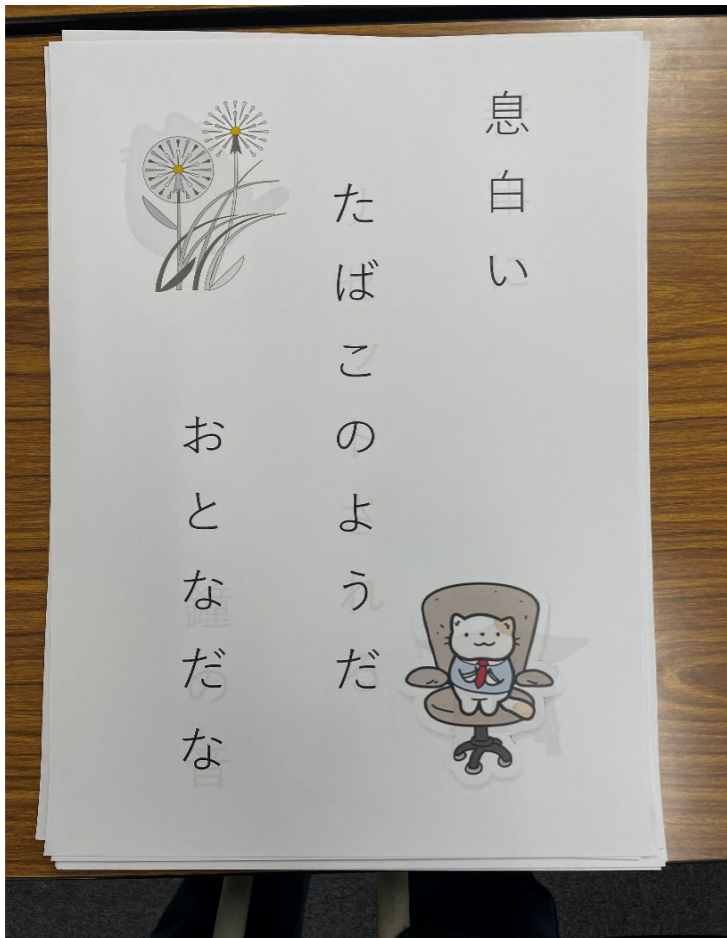 息白い
たばこのようだ
おとなだな